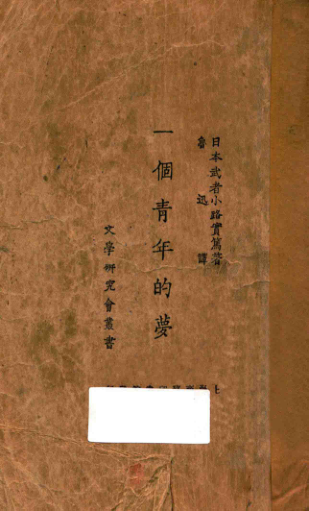 日本武者小路實篤著
魯迅譯
一個青年的夢
文學研究會叢書
上